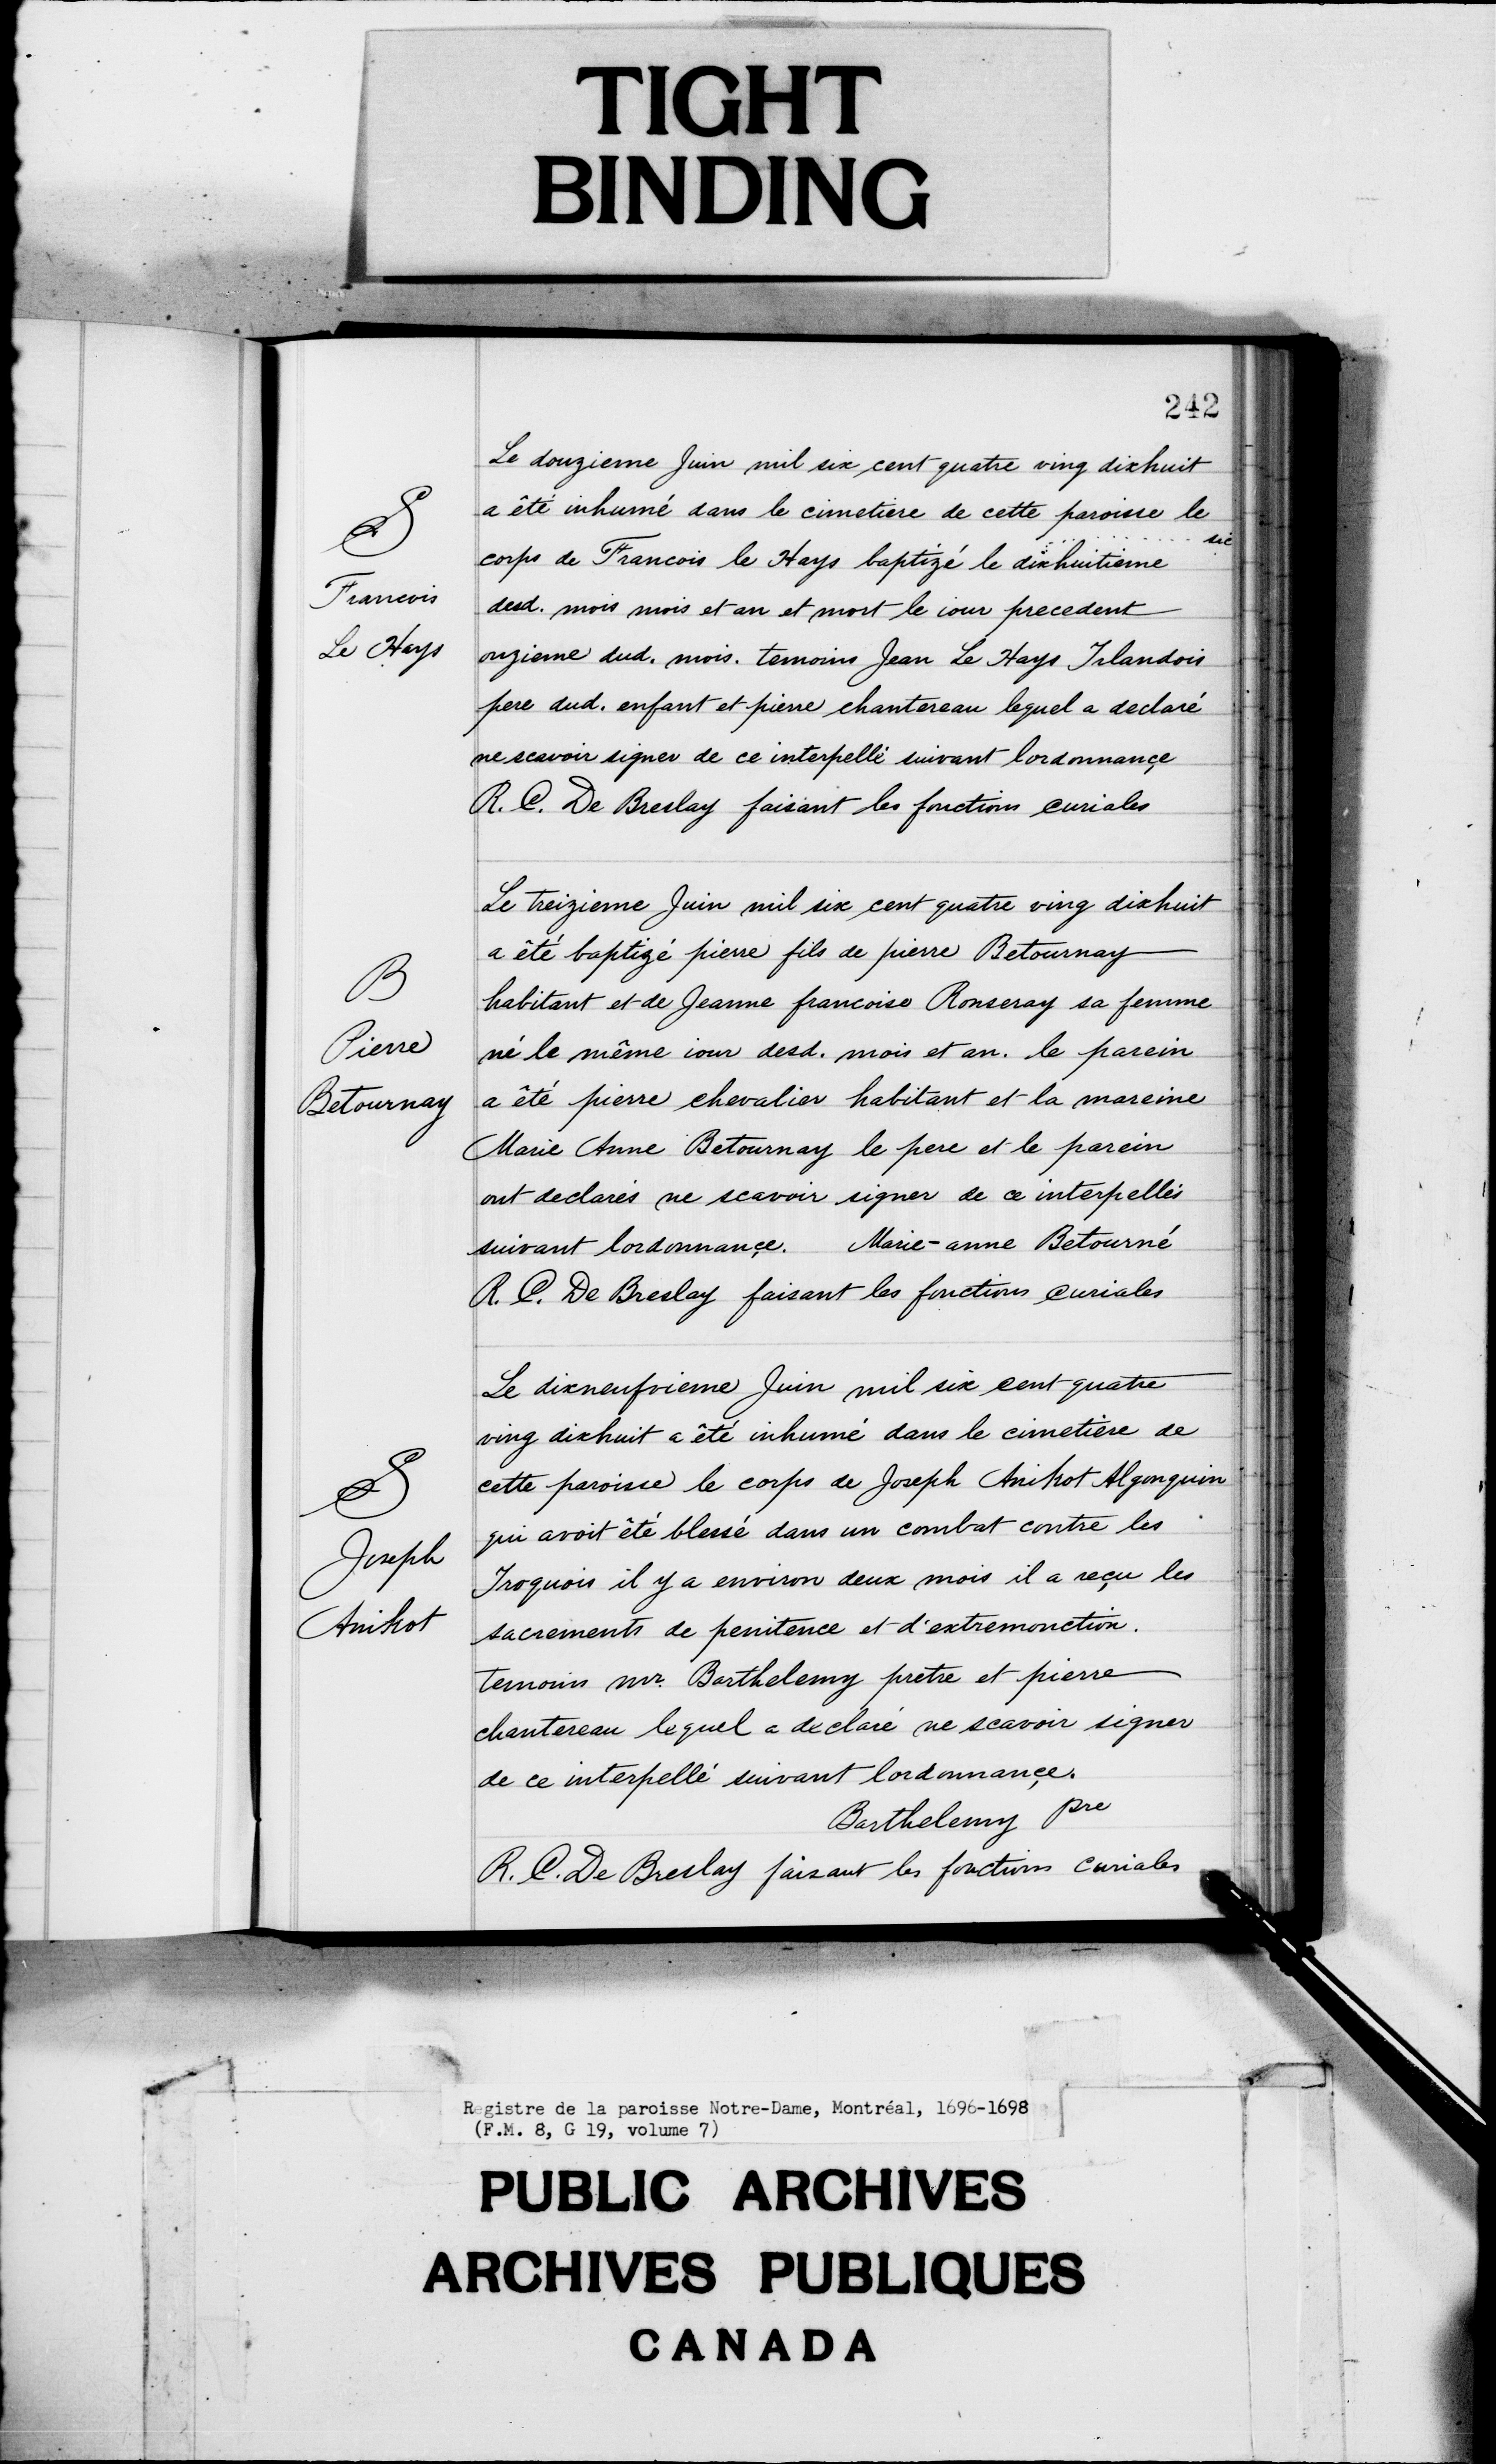 TIGHT
BINDING
242
Le douzieme Juin mil six cent quatre ving dixhuit
a êté inhumé dans le cimetiere de cette paroisse le
sic
corps de Francois le Hays baptizé le dixhuitieme
desd. mois mois et an et mort le iour precedent
onzieme dud. mois. temoins Jean Le Hays Irlandois
pere dud. enfant et pierre chantereau lequel a declaré
ne scavoir signer de ce interpellé suivant lordonnançe
R. C. De Breslay faisant les fonctions curiales
S
Francois
Le Hays
Le treizieme Juin mil six cent quatre ving dixhuit
a êté baptizé pierre fils de pierre Betournay
habitant et de Jeanne francoise Ronseray sa femme
né le même iour desd. mois et an. le parein
a êté pierre chevalier habitant et la mareine
Marie Anne Betournay le pere et le parein
ont declarés ne scavoir signer de ce interpellés
suivant lordonnançe. Marie-anne Betourné
R. C. De Breslay faisant les fonctions curiales
B
Pierre
Betournay
Le dixneufvieme Juin mil six cent quatre
ving dixhuit a êté inhumé dans le cimetiere de
cette paroisse le corps de Joseph Anikot Algonquin
qui avoit êté blessé dans un combat contre les
Iroquois il y a environ deux mois il a reçu les
sacrements de penitence et d'extremonction.
temoins mr. Barthelemy pretre et pierre
chantereau lequel a declaré ne scavoir signer
de ce interpellé suivant lordonnançe.
Barthelemy pre
R. C. De Breslay faisant les fonctions curiales
S
Joseph
Anikot
Registre de la paroisse Notre-Dame, Montréal, 1696-1698
(F.M. 8, G 19, volume 7)
PUBLIC ARCHIVES
ARCHIVES PUBLIQUES
CANADA